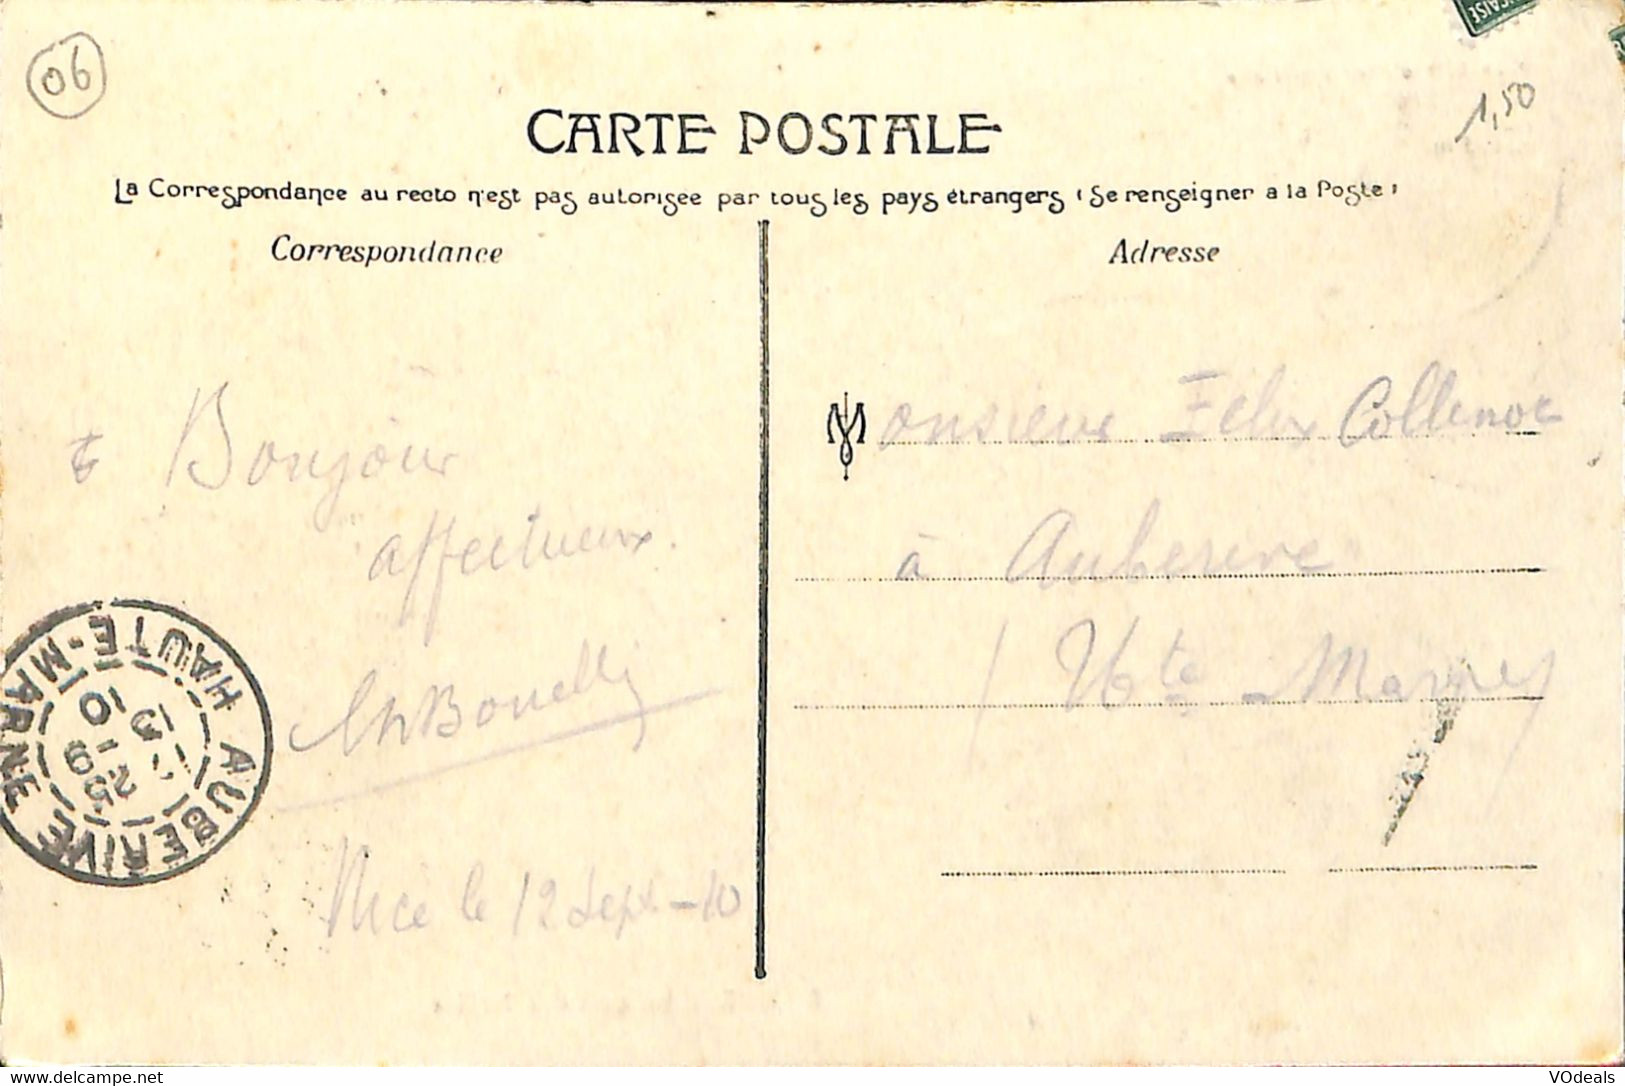 06
ÇAISE
1,50
CARTE POSTALE
La Correspondance au recto n'est pas autorisée par tous les pays étrangers (Se renseigner a la Poste)
Correspondance
Adresse
Bonjour
affectueux.
Monsieur Félix Collenot
à Auberive
(Hte - Marne)
AUBERIVE
HAUTE-MARNE
Nice le 12 Sept - 10
VOdeals
www.delcampe.net